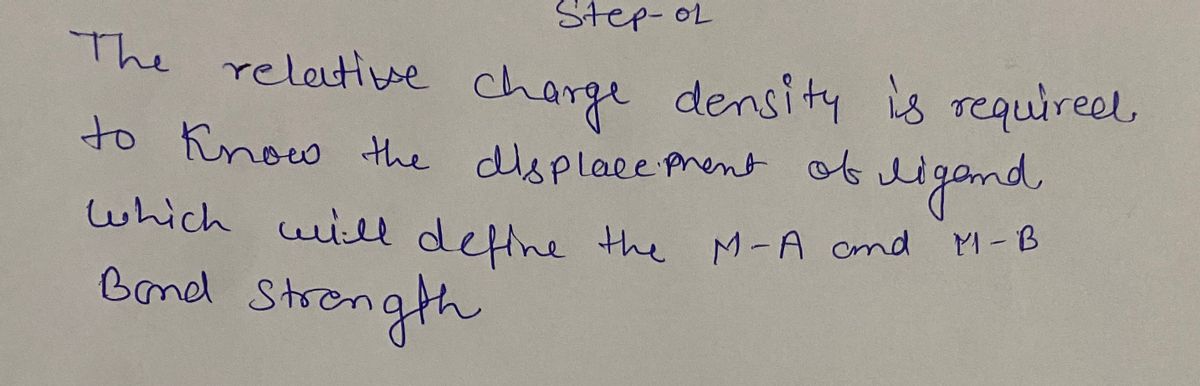 Step-02
The relative charge density is required
to know the displacement of ligand
which will define the M-A and M-B
Bond strength